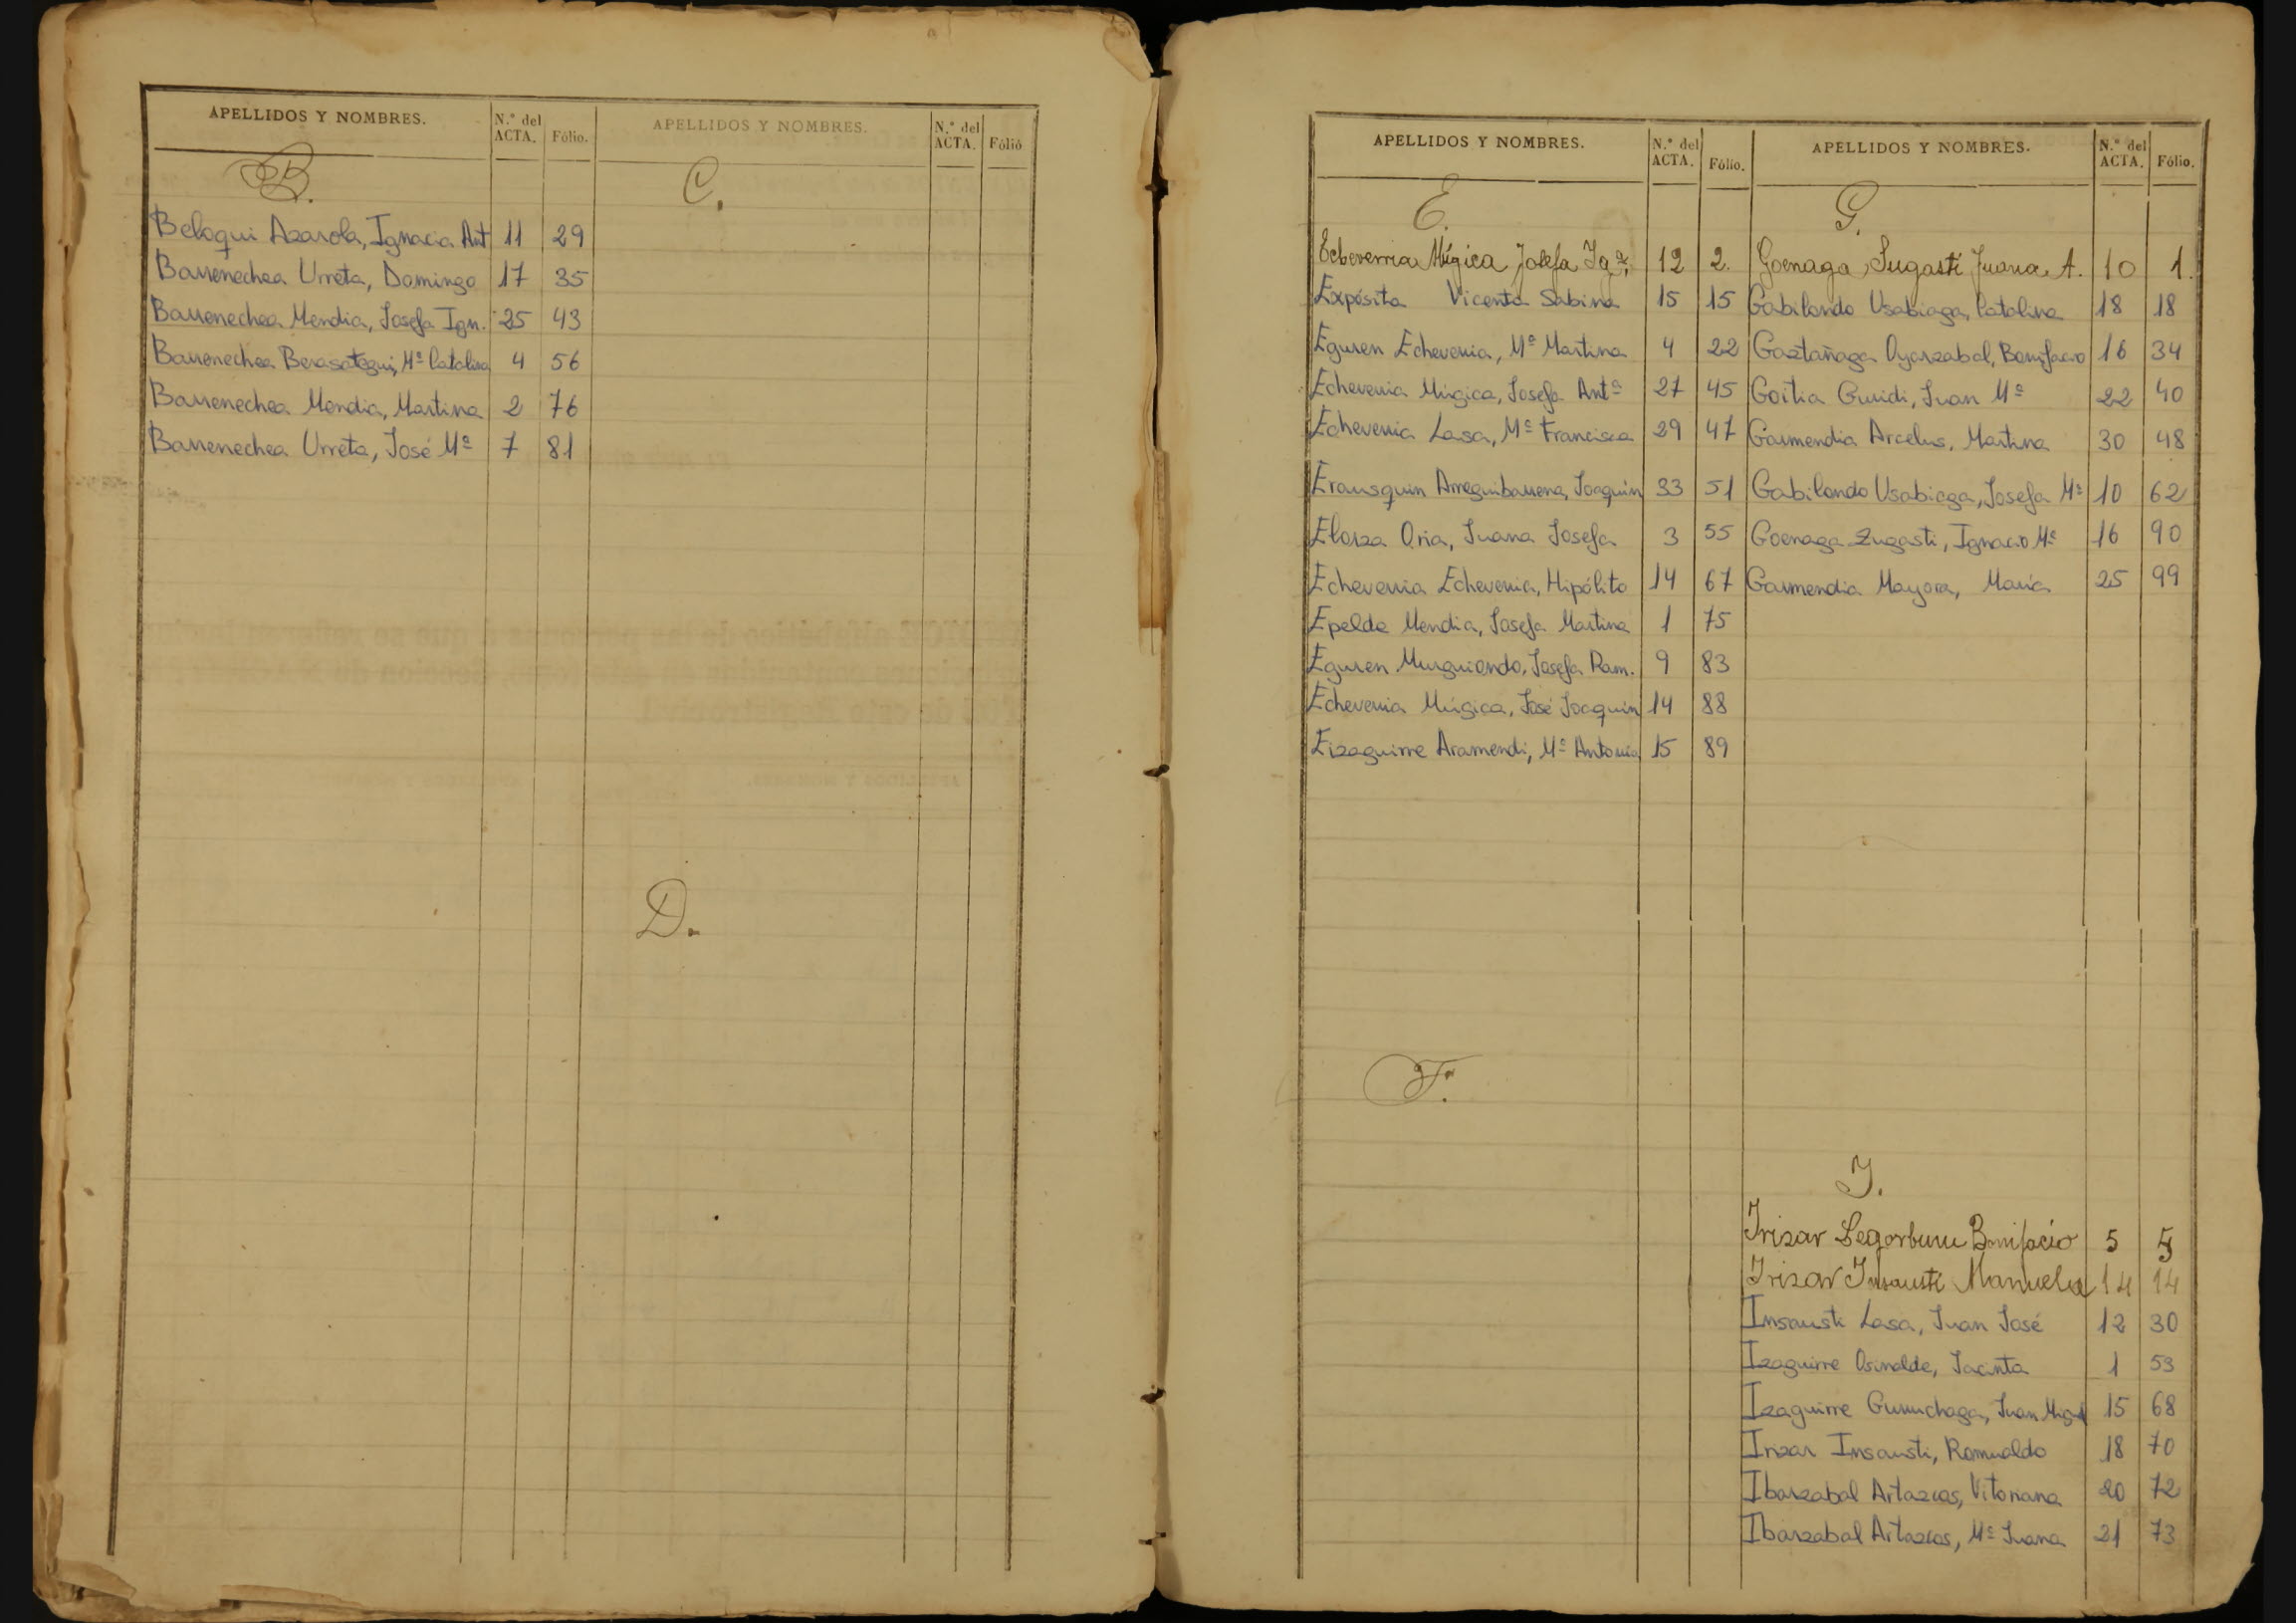 APELLIDOS Y NOMBRES. N.º del ACTA. Fólio.
B.
Beloqui Azarola, Ignacia Ant 11 29
Barrenechea Urreta, Domingo 17 35
Barrenechea Mendia, Josefa Ign. 25 43
Barrenechea Berasategui, Mª Catalina 4 56
Barrenechea Mendia, Martina 2 76
Barrenechea Urreta, José Mª 7 81
APELLIDOS Y NOMBRES. N.º del ACTA. Fólio
C.
D.
APELLIDOS Y NOMBRES. N.º del ACTA. Fólio.
E.
Echeverria Múgica Josefa Igª, 12 2.
Expósita Vicenta Sabina 15 15
Eguren Echeverria, Mª Martina 4 22
Echeverria Múgica, Josefa Antª 27 45
Echeverria Lasa, Mª Francisca 29 47
Erausquin Arreguibarrena, Joaquín 33 51
Elorza Oria, Juana Josefa 3 55
Echeverria Echeverria, Hipólito 14 67
Epelde Mendia, Josefa Martina 1 75
Eguren Murguiondo, Josefa Ram. 9 83
Echeverria Múgica, José Joaquín 14 88
Eizaguirre Aramendi, Mª Antonia 15 89
F.
APELLIDOS Y NOMBRES. N.º del ACTA. Fólio.
G.
Goenaga Sugasti Juana A. 10 1.
Gabilondo Usabiaga, Catalina 18 18
Gaztañaga Oyarzabal, Bonifacio 16 34
Goitia Guridi, Juan Mª 22 40
Garmendia Arcelus, Martina 30 48
Gabilondo Usabiaga, Josefa Mª 10 62
Goenaga Zugasti, Ignacio Mª 16 90
Garmendia Mayora, María 25 99
I.
Irizar Segorburu Bonifacio 5 5
Irizar Insausti Manuela 14 14
Insausti Lasa, Juan José 12 30
Izaguirre Osinalde, Jacinta 1 53
Izaguirre Guruchaga, Juan Miguel 15 68
Irizar Insausti, Romualdo 18 70
Ibarzabal Artazcos, Vitoriana 20 72
Ibarzabal Artazcos, Mª Juana 21 73